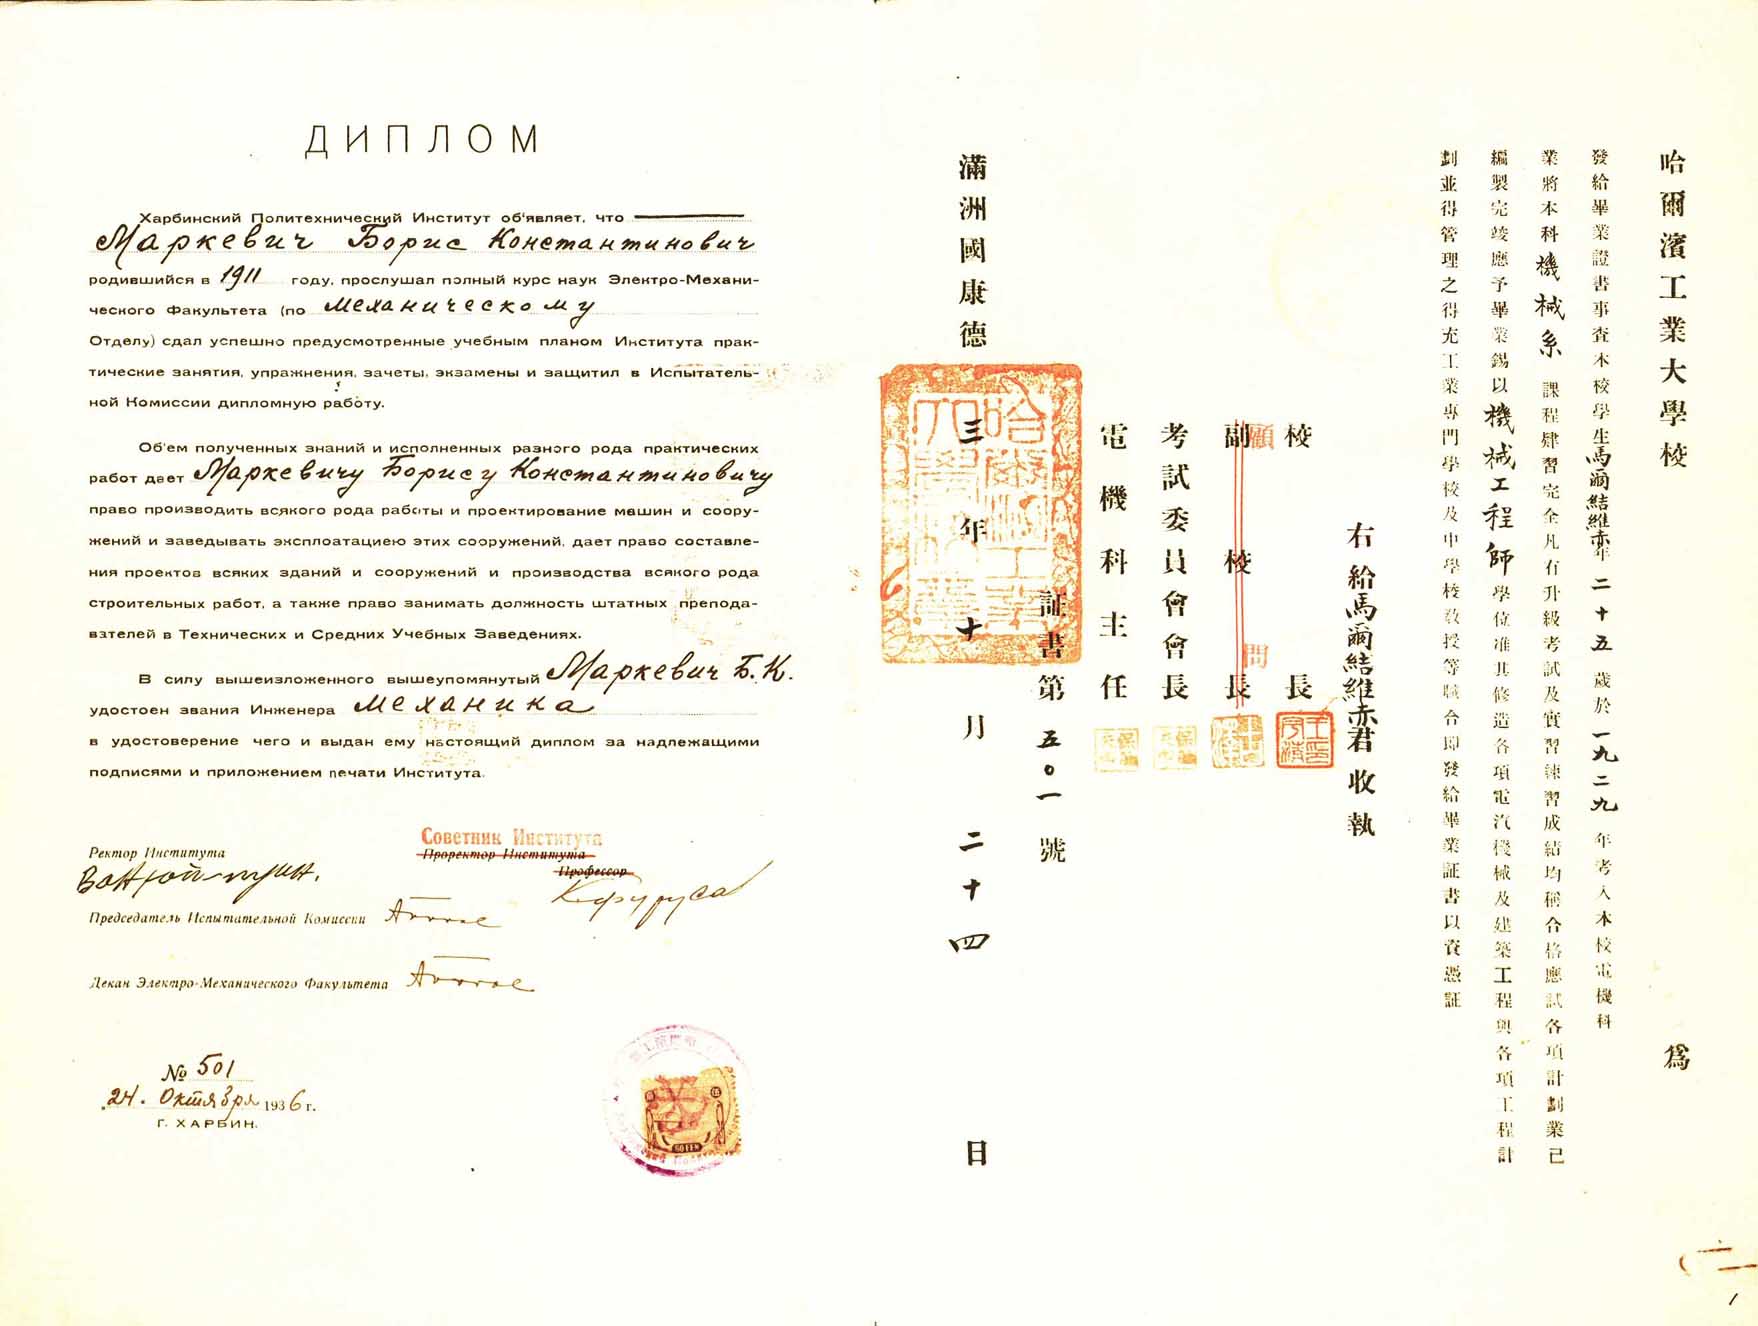 ДИПЛОМ
Харбинский Политехнический Институт об'являет, что
Маркевич Борис Константинович
родившийся в 1911 году, прослушал полный курс наук Электро-Механи-
ческого Факультета (по механическому
Отделу) сдал успешно предусмотренные учебным планом Института прак-
тические занятия, упражнения, зачеты, экзамены и защитил в Испытатель-
ной Комиссии дипломную работу.
Об'ем полученных знаний и исполненных разного рода практических
работ дает Маркевичу Борису Константиновичу
право производить всякого рода работы и проектирование машин и соору-
жений и заведывать эксплоатациею этих сооружений, дает право составле-
ния проектов всяких зданий и сооружений и производства всякого рода
строительных работ, а также право занимать должность штатных препода-
вателей в Технических и Средних Учебных Заведениях.
В силу вышеизложенного вышеупомянутый Маркевич Б. К.
удостоен звания Инженера механика
в удостоверение чего и выдан ему настоящий диплом за надлежащими
подписями и приложением печати Института.
Советник Института
Ректор Института Проректор Института
Профессор
Председатель Испытательной Комиссии
Декан Электро-Механического Факультета
№ 501
24. Октября 1936 г.
г. ХАРБИН.
哈爾濱工業大學校 爲
發給畢業證書事查本校學生馬爾結維赤年二十五歲於一九二九年考入本校電機科
業將本科機械系課程肄習完全凡有升級考試及實習練習成結均稱合格應試各項計劃業已
編製完竣應予畢業錫以機械工程師學位准其修造各項電汽機械及建築工程與各項工程計
劃並得管理之得充工業專門學校及中學校教授等職合即發給畢業証書以資憑証
右給馬爾結維赤君收執
校長
副校長
顧問
考試委員會會長
電機科主任
証書第五〇一號
滿洲國康德三年十月二十四日